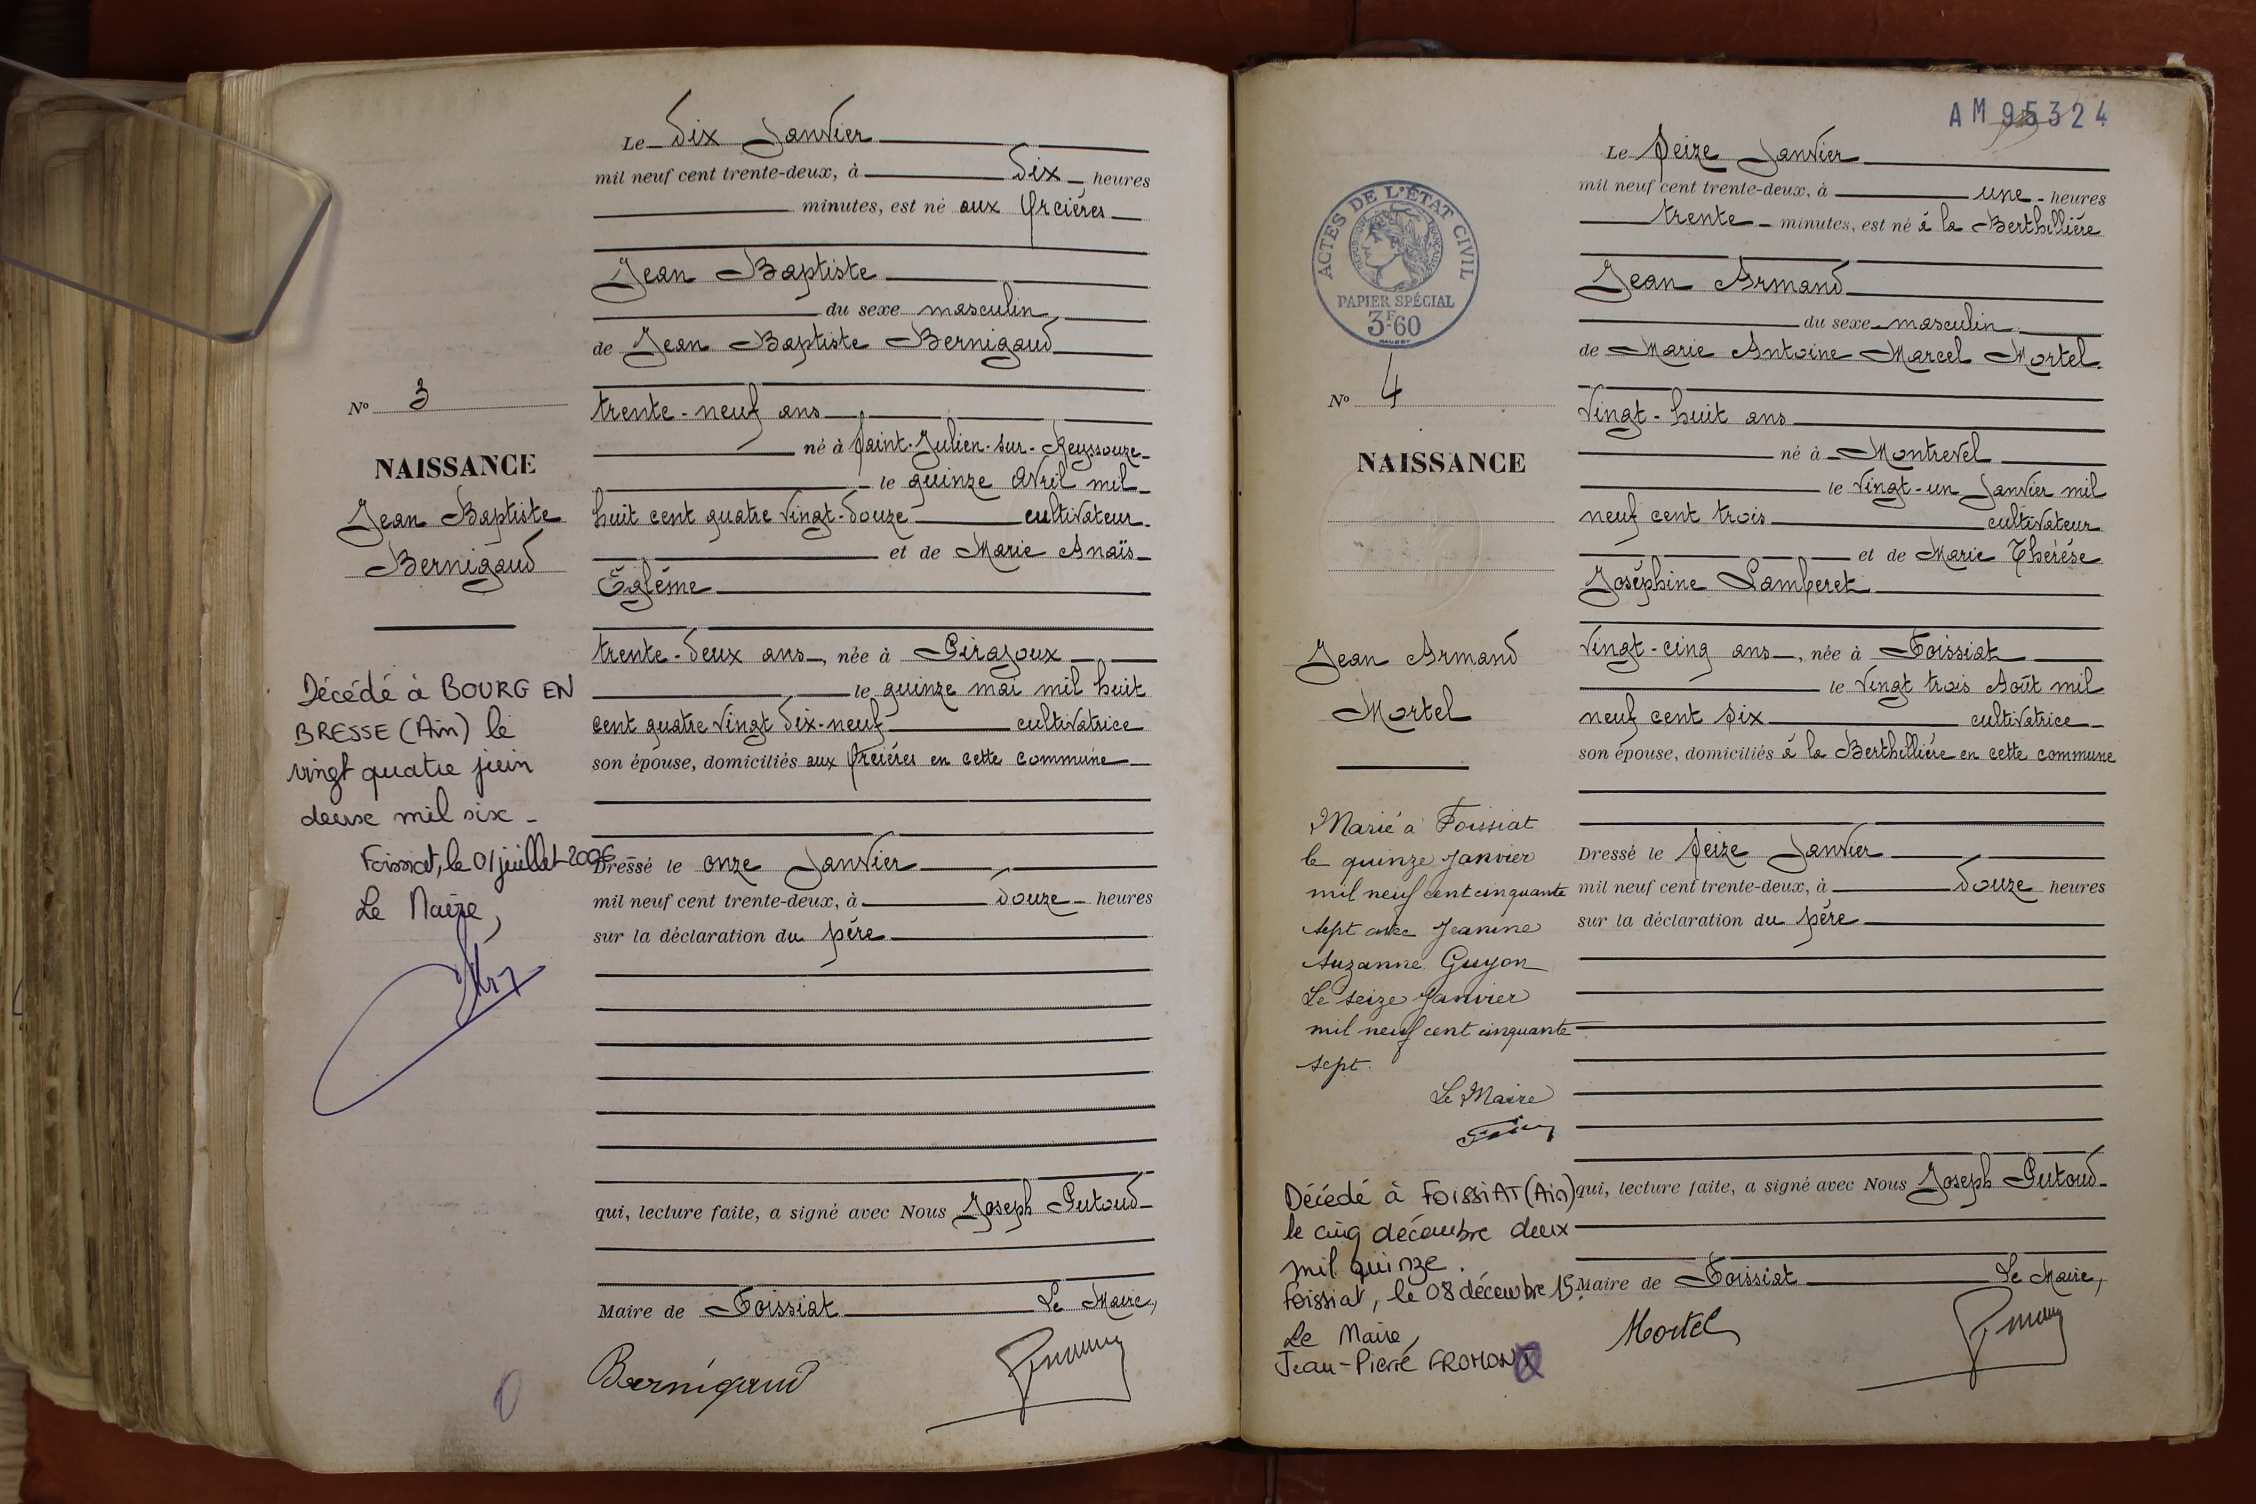 Le Dix Janvier
mil neuf cent trente-deux, à Dix heures
minutes, est né aux Orcières
Jean Baptiste
du sexe masculin
de Jean Baptiste Bernigaud
trente-neuf ans
né à Saint-Julien-sur-Reyssouze
le quinze Avril mil
huit cent quatre vingt-douze cultivateur
et de Marie Anaïs
Egléme
trente-deux ans, née à Pirajoux
le quinze mai mil huit
cent quatre vingt dix-neuf cultivatrice
son épouse, domiciliés aux Orcières en cette commune
Dressé le onze Janvier
mil neuf cent trente-deux, à douze heures
sur la déclaration du père
qui, lecture faite, a signé avec Nous Joseph Putoud
Maire de Foissiat Le Maire,
Bernigaud
No 3
NAISSANCE
Jean Baptiste
Bernigaud
Décédé à BOURG EN
BRESSE (Ain) le
vingt quatre juin
deux mil six -
Foissiat, le 01 juillet 2006
Le Maire,
AM 95324
ACTES DE L'ÉTAT CIVIL
RÉPUBLIQUE FRANÇAISE
PAPIER SPÉCIAL
3F60
No 4
NAISSANCE
Jean Armand
Mortel
Marié à Foissiat
le quinze Janvier
mil neuf cent cinquante
sept avec Jeanine
Suzanne Guyon
Le seize Janvier
mil neuf cent cinquante
sept.
Le Maire
Décédé à FOISSIAT (Ain)
le cinq décembre deux
mil quinze.
Foissiat, le 08 décembre 15.
Le Maire,
Jean-Pierre FROMONT
Le Seize Janvier
mil neuf cent trente-deux, à une heures
trente minutes, est né à la Berthillière
Jean Armand
du sexe masculin
de Marie Antoine Marcel Mortel.
Vingt-huit ans
né à Montrevel
le vingt-un Janvier mil
neuf cent trois cultivateur
et de Marie Thérèse
Joséphine Lamberet
Vingt-cinq ans, née à Foissiat
le vingt trois Août mil
neuf cent six cultivatrice
son épouse, domiciliés à la Berthillière en cette commune
Dressé le Seize Janvier
mil neuf cent trente-deux, à douze heures
sur la déclaration du père
qui, lecture faite, a signé avec Nous Joseph Putoud
Maire de Foissiat Le Maire,
Mortel